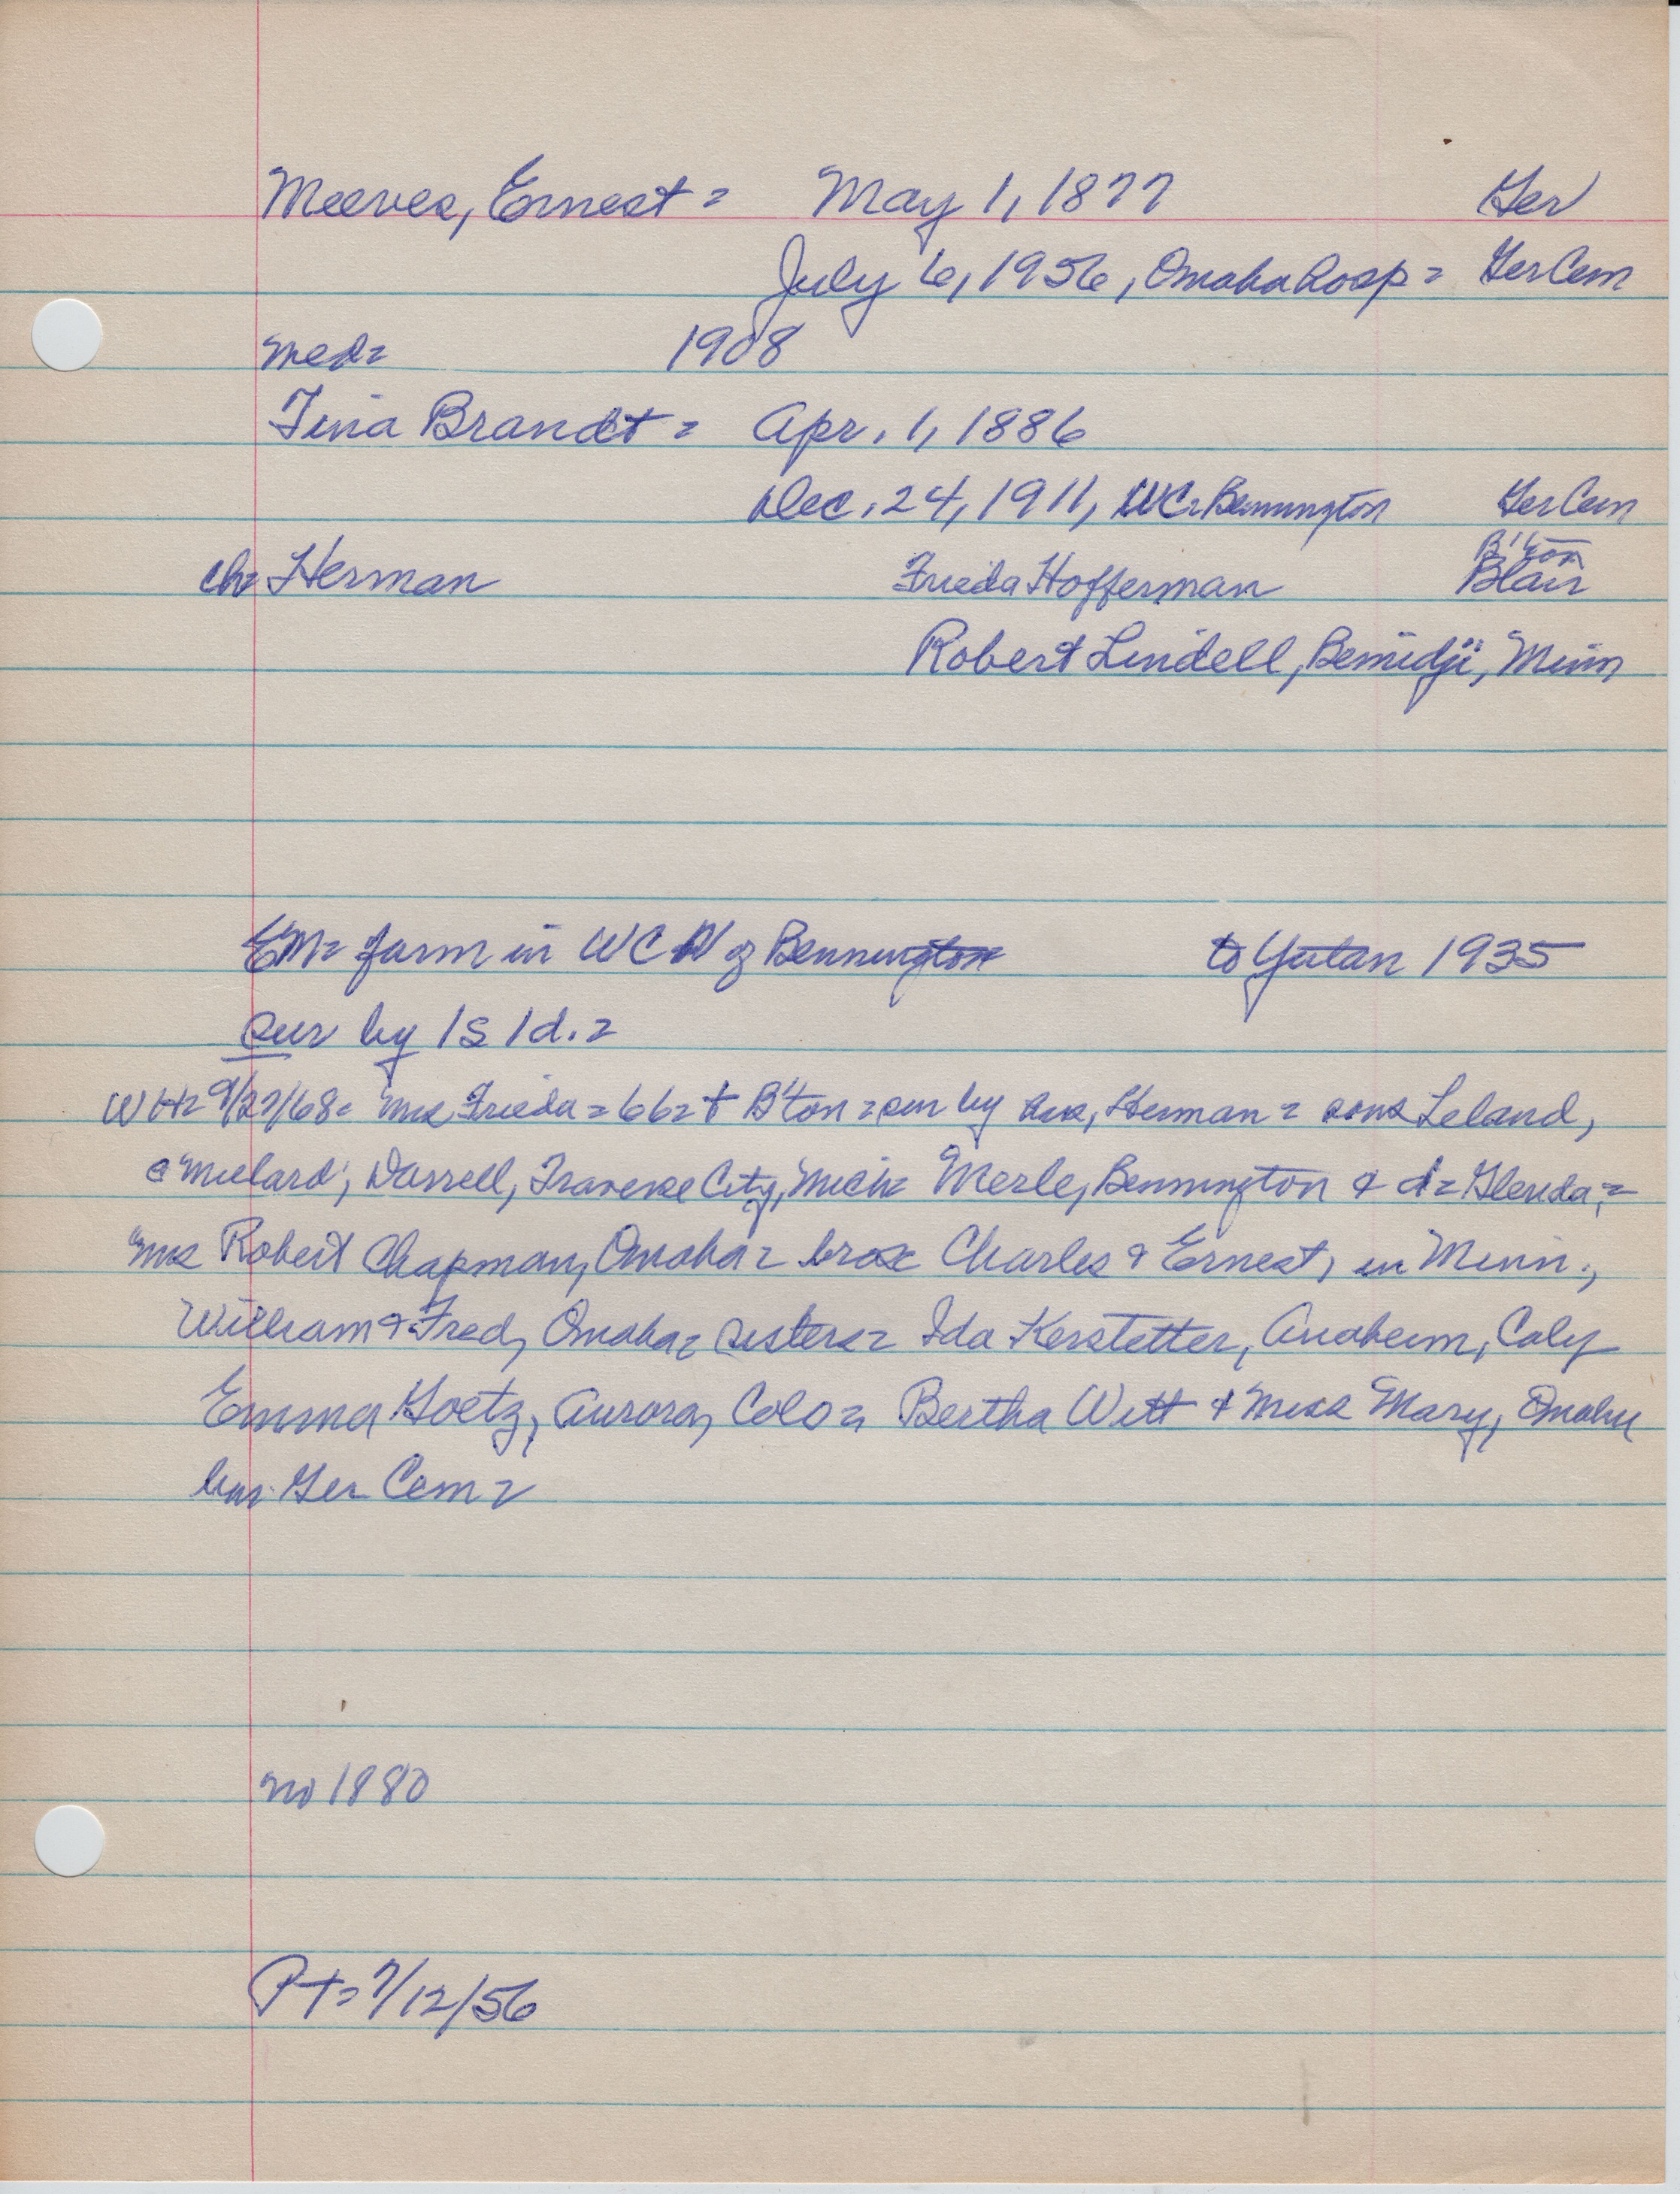 Meeves, Ernest = May 1, 1877 Ger
July 6, 1956, Omaha hosp = Ger Cem
med= 1908
Tina Brandt = Apr. 1, 1886
Dec. 24, 1911, WC= Bennington Ger Cem
B'ton
ch= Herman Frieda Hofferman Blair
Robert Lindell, Bemidji, Minn
EM= farm in WC N of Bennington to Yutan 1935
sur by 1s 1d. =
WH= 9/27/68= Mrs Frieda = 66= + B'ton = sur by hus, Herman = sons Leland,
Millard; Darrell, Traverse City, Mich= Merle, Bennington & d= Glenda, =
Mrs Robert Chapman, Omaha = bros= Charles & Ernest, in Minn.,
William & Fred, Omaha= sisters= Ida Kerstetter, Anaheim, Calif
Emma Goetz, Aurora, Colo=, Bertha Witt & Miss Mary, Omaha
bur. Ger Cem =
no 1880
PT= 7/12/56